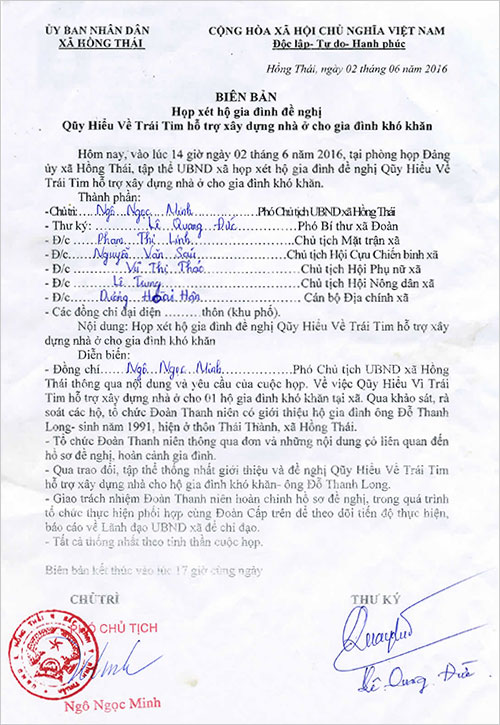 ỦY BAN NHÂN DÂN
XÃ HỒNG THÁI
CỘNG HÒA XÃ HỘI CHỦ NGHĨA VIỆT NAM
Độc lập- Tự do- Hạnh phúc
Hồng Thái, ngày 02 tháng 06 năm 2016
BIÊN BẢN
Họp xét hộ gia đình đề nghị
Qũy Hiểu Về Trái Tim hỗ trợ xây dựng nhà ở cho gia đình khó khăn
Hôm nay, vào lúc 14 giờ ngày 02 tháng 6 năm 2016, tại phòng họp Đảng
ủy xã Hồng Thái, tập thể UBND xã họp xét hộ gia đình đề nghị Qũy Hiểu Về
Trái Tim hỗ trợ xây dựng nhà ở cho gia đình khó khăn.
Thành phần:
- Chủ trì: Ngô Ngọc Minh Phó Chủ tịch UBND xã Hồng Thái
- Thư ký: Lê Quang Đức Phó Bí thư xã Đoàn
- Đ/c Phạm Thị Lĩnh Chủ tịch Mặt trận xã
- Đ/c Nguyễn Văn Sáu Chủ tịch Hội Cựu Chiến binh xã
- Đ/c Vũ Thị Thảo Chủ tịch Hội Phụ nữ xã
- Đ/c Lê Trung Chủ tịch Hội Nông dân xã
- Đ/c Dương Hoài Hận Cán bộ Địa chính xã
- Các đồng chí đại diện ..........thôn (khu phố).
Nội dung: Họp xét hộ gia đình đề nghị Qũy Hiểu Về Trái Tim hỗ trợ xây
dựng nhà ở cho gia đình khó khăn
Diễn biến:
- Đồng chí Ngô Ngọc Minh Phó Chủ tịch UBND xã Hồng
Thái thông qua nội dung và yêu cầu của cuộc họp. Về việc Qũy Hiểu Vì Trái
Tim hỗ trợ xây dựng nhà ở cho 01 hộ gia đình khó khăn tại xã. Qua khảo sát, rà
soát các hộ, tổ chức Đoàn Thanh niên có giới thiệu hộ gia đình ông Đỗ Thanh
Long- sinh năm 1991, hiện ở thôn Thái Thành, xã Hồng Thái.
- Tổ chức Đoàn Thanh niên thông qua đơn và những nội dung có liên quan đến
hồ sơ đề nghị, hoàn cảnh gia đình.
- Qua trao đổi, tập thể thống nhất giới thiệu và đề nghị Qũy Hiểu Về Trái Tim
hỗ trợ xây dựng nhà cho hộ gia đình khó khăn- ông Đỗ Thanh Long.
- Giao trách nhiệm Đoàn Thanh niên hoàn chỉnh hồ sơ đề nghị, trong quá trình
tổ chức thực hiện phối hợp cùng Đoàn Cấp trên để theo dõi tiến độ thực hiện,
báo cáo về Lãnh đạo UBND xã để chỉ đạo.
- Tất cả thống nhất theo tinh thần cuộc họp.
Biên bản kết thúc vào lúc 17 giờ cùng ngày
CHỦ TRÌ
THƯ KÝ
PHÓ CHỦ TỊCH
Ngô Ngọc Minh
Lê Quang Đức